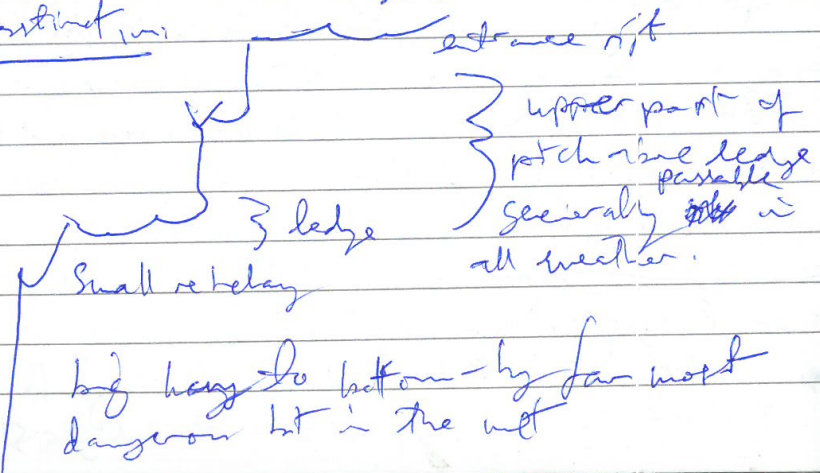 entrance rift
upper part of
pitch above ledge
passable
generally in
all weather.
} ledge
Small rebelay
big hang to bottom - by far most
dangerous bit in the wet